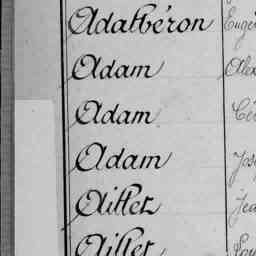 Adalbéron Eugè
Adam Alex
Adam Cé
Adam Jos
Aillet Jea
Aillet Lou